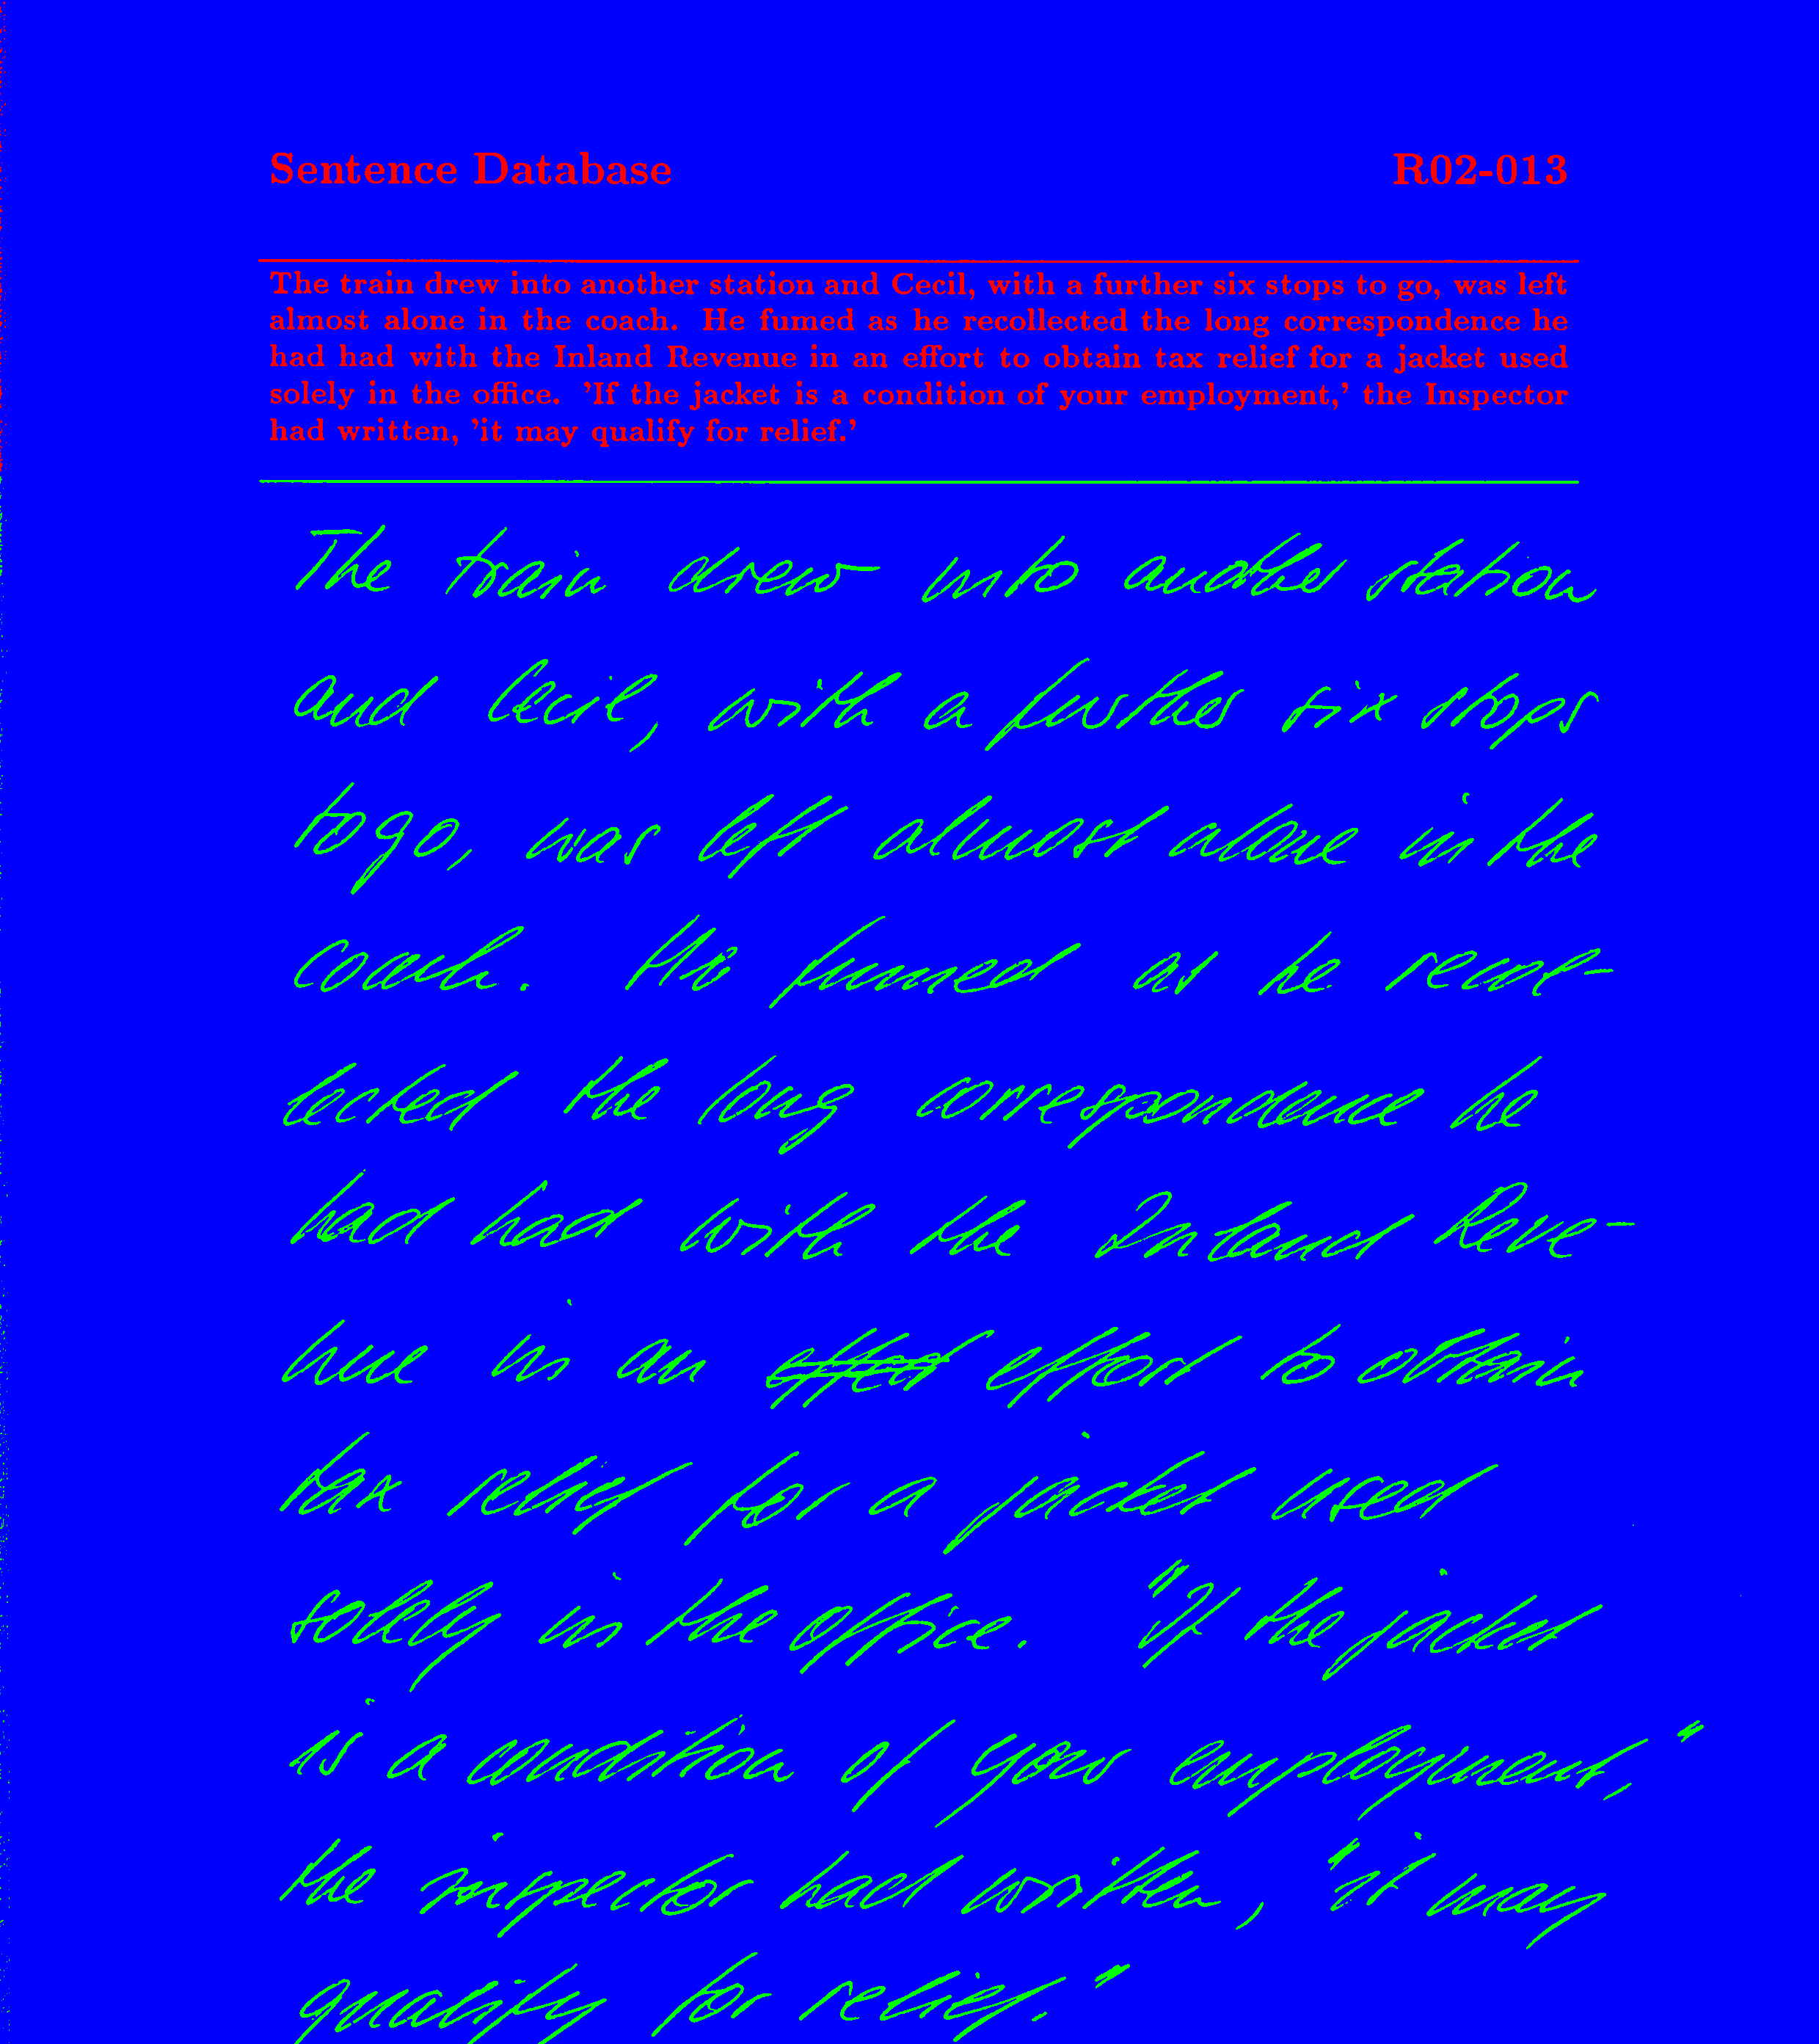 Sentence Database R02-013
The train drew into another station and Cecil, with a further six stops to go, was left
almost alone in the coach. He fumed as he recollected the long correspondence he
had had with the Inland Revenue in an effort to obtain tax relief for a jacket used
solely in the office. 'If the jacket is a condition of your employment,' the Inspector
had written, 'it may qualify for relief.'
The train drew into another station
and Cecil, with a further six stops
to go, was left almost alone in the
coach. He fumed as he recol-
lected the long correspondence he
had had with the Inland Reve-
nue in an effort to obtain
tax relief for a jacket used
solely in the office. "If the jacket
is a condition of your employment,"
the inspector had written, "it may
qualify for relief."